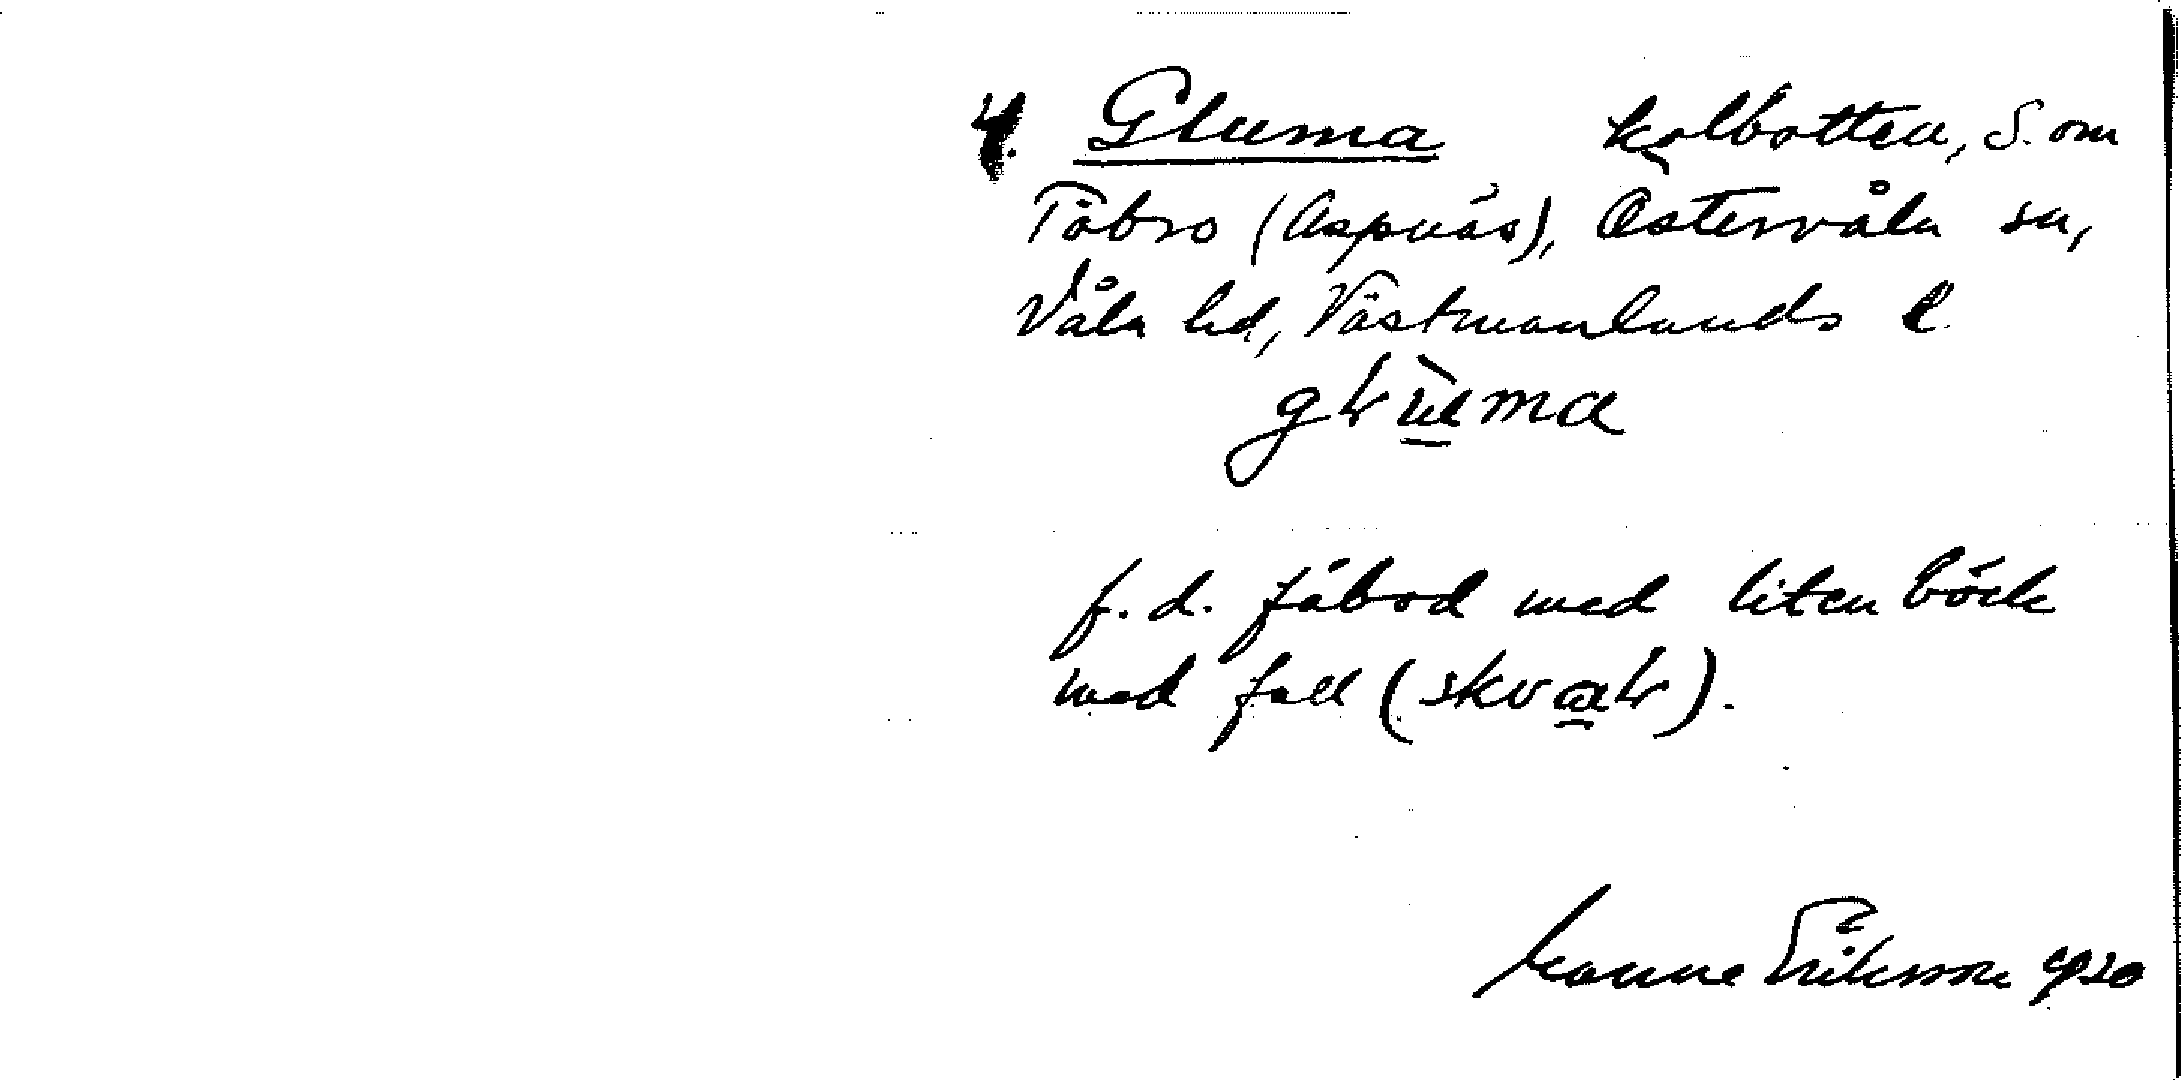 4. Gluma kolbotten, S. om
Täbro (Aspnäs), Östervåla sn,
Våla hd, Västmanlands l.
f. d. fäbod med liten bäck
med fall (skval).
Manne Eriksson 1930